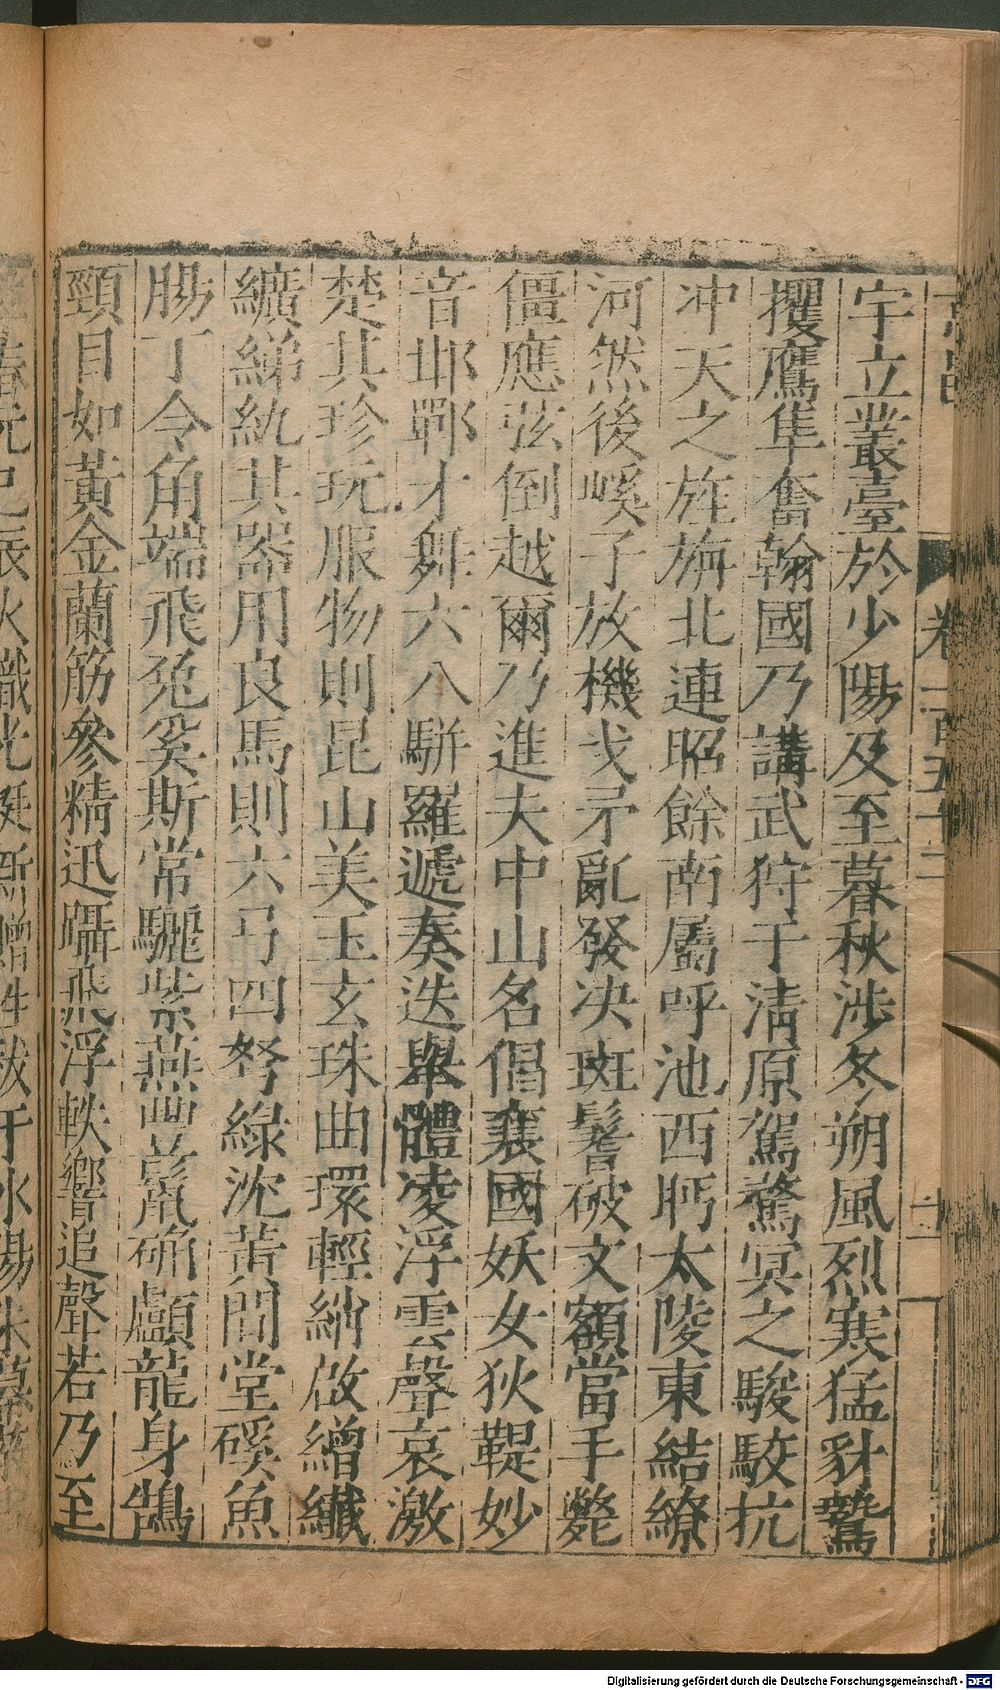 卷一百五十二
宇立叢臺於少陽及至暮秋涉冬朔風烈寒猛豺鷙
攫鷹隼奮翰國乃講武狩于清原駕騖冥之駿駮抗
冲天之旌旃北連昭餘南屬呼池西眄太陵東結繚
河然後嵠子放機戈矛亂發决斑髻破文額當手斃
僵應弦倒越爾乃進夫中山名倡襄國妖女狄鞮妙
音邯鄲才舞六八駢羅遞奏迭舉體凌浮雲聲哀激
楚其珍玩服物則昆山美玉玄珠曲環輕綃啟繒纖
纊綈紈其器用良馬則六弓四弩綠沈黄間堂磎魚
腸丁令角端飛兔奚斯常驪紫燕豐鬋确顱龍身鵠
頸目如黃金蘭筋參精迅躡飛浮軼響追聲若乃至
Digitalisierung gefördert durch die Deutsche Forschungsgemeinschaft - DFG